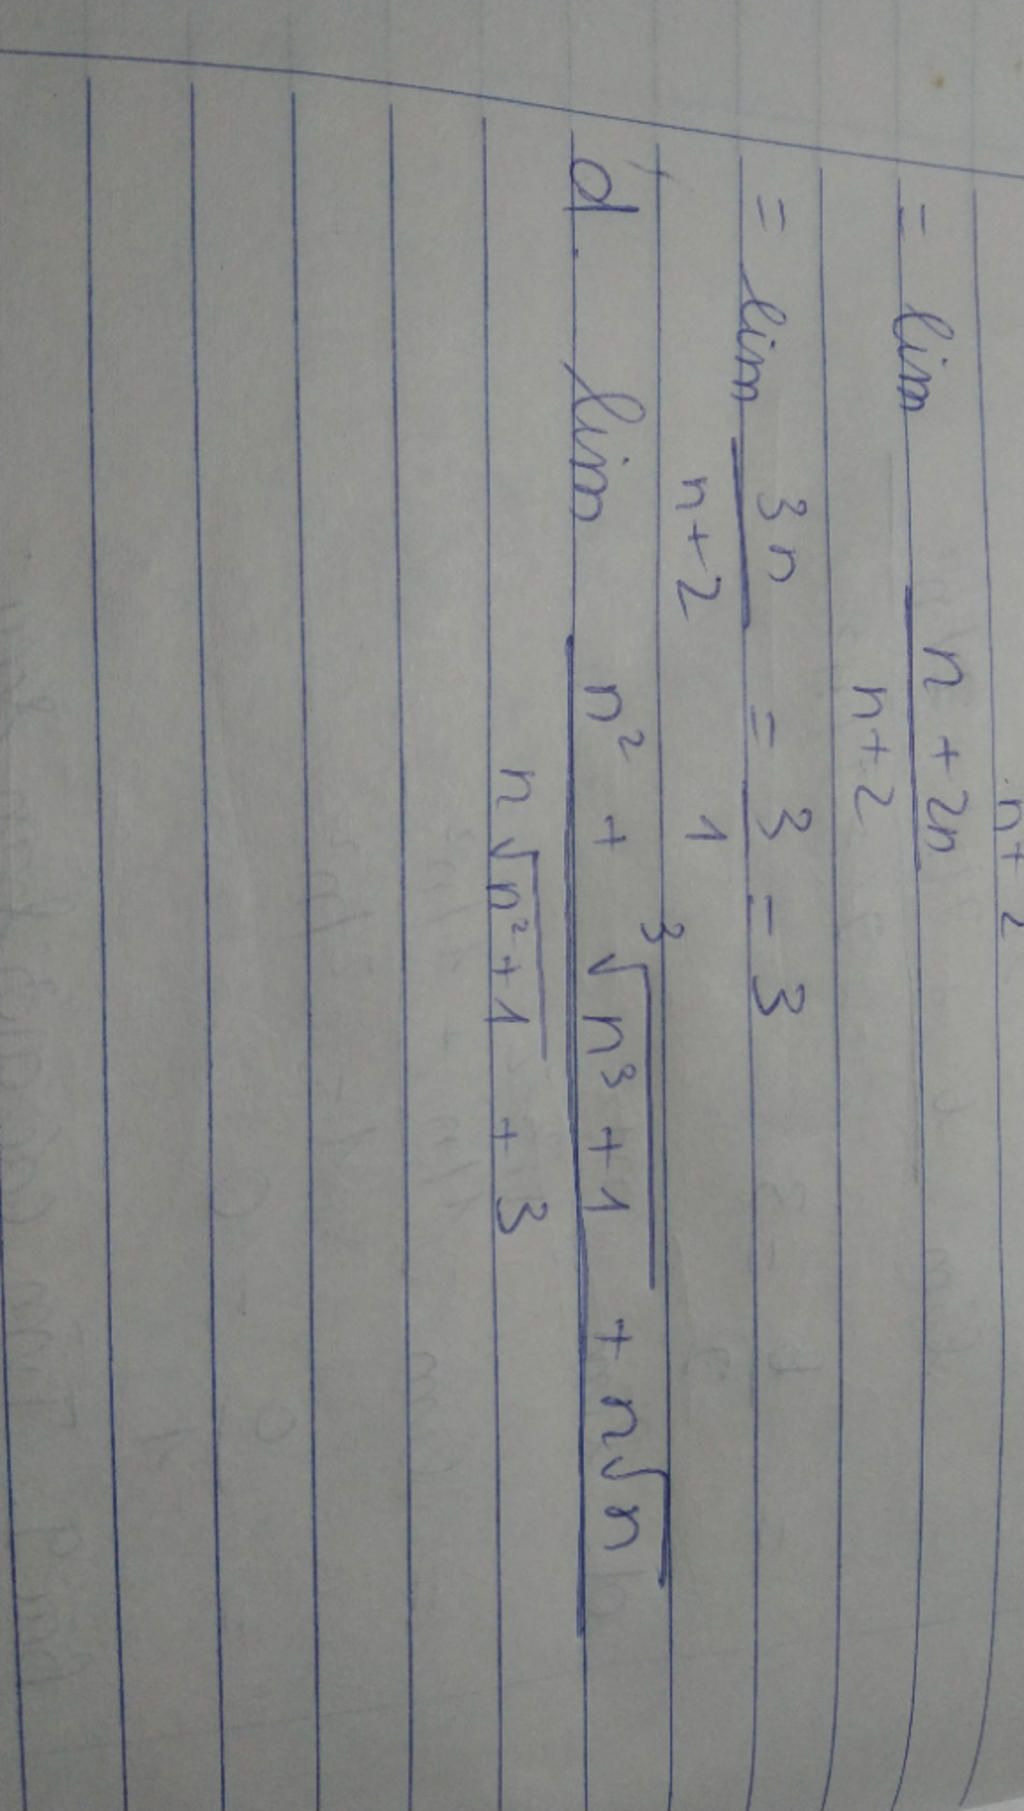 n+2
= lim n + 2n
n+2
= lim 3n = 3 = 3
n+2 1
d. lim n² + ³√n³+1 + n√n
n√n²+1 + 3